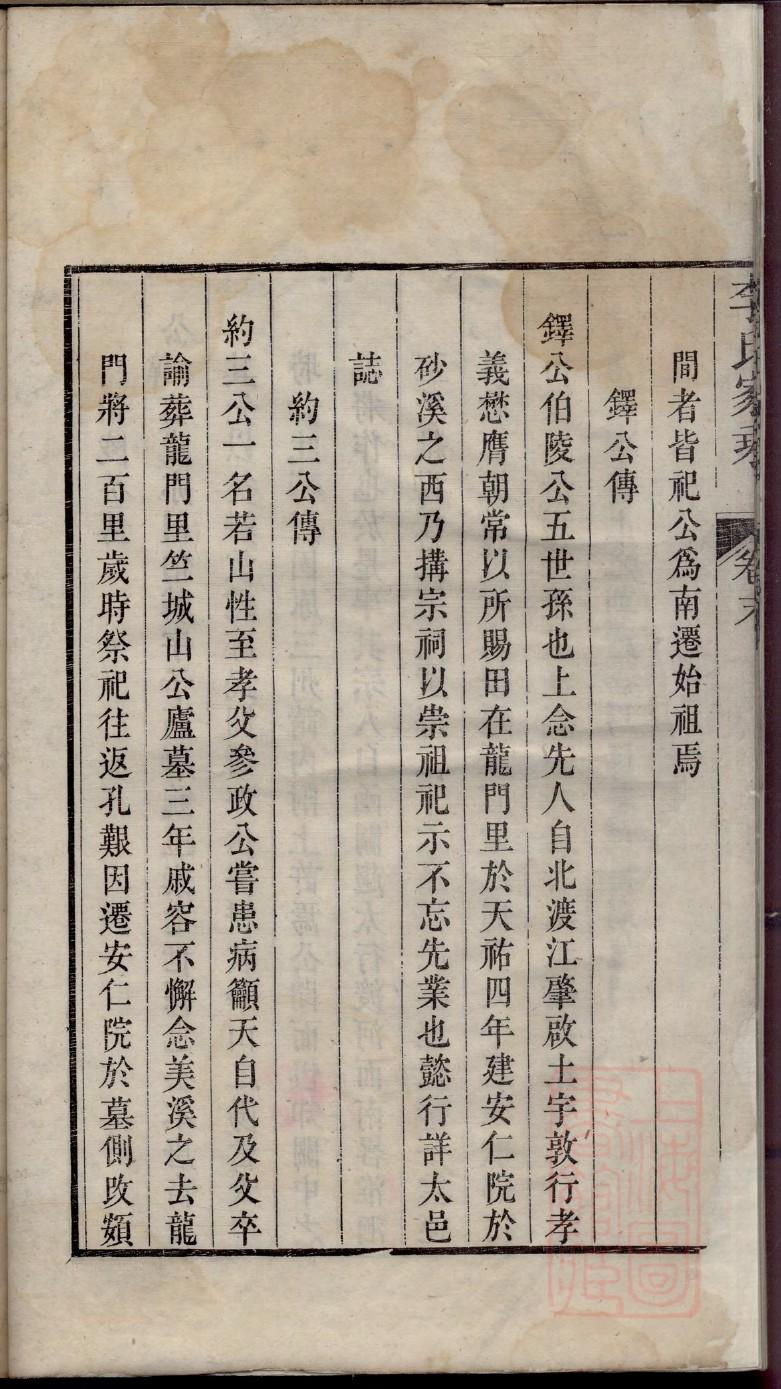 李氏家
卷末
間者皆祀公爲南遷始祖焉
鐸公傳
鐸公伯陵公五世孫也上念先人自北渡江肇啟土宇敦行孝
義懋膺朝常以所賜田在龍門里於天祐四年建安仁院於
砂溪之西乃搆宗祠以崇祖祀示不忘先業也懿行詳太邑
誌
約三公傳
約三公一名若山性至孝父參政公嘗患病籲天自代及父卒
諭葬龍門里竺城山公廬墓三年戚容不懈念美溪之去龍
門將二百里歲時祭祀往返孔艱因遷安仁院於墓側改額